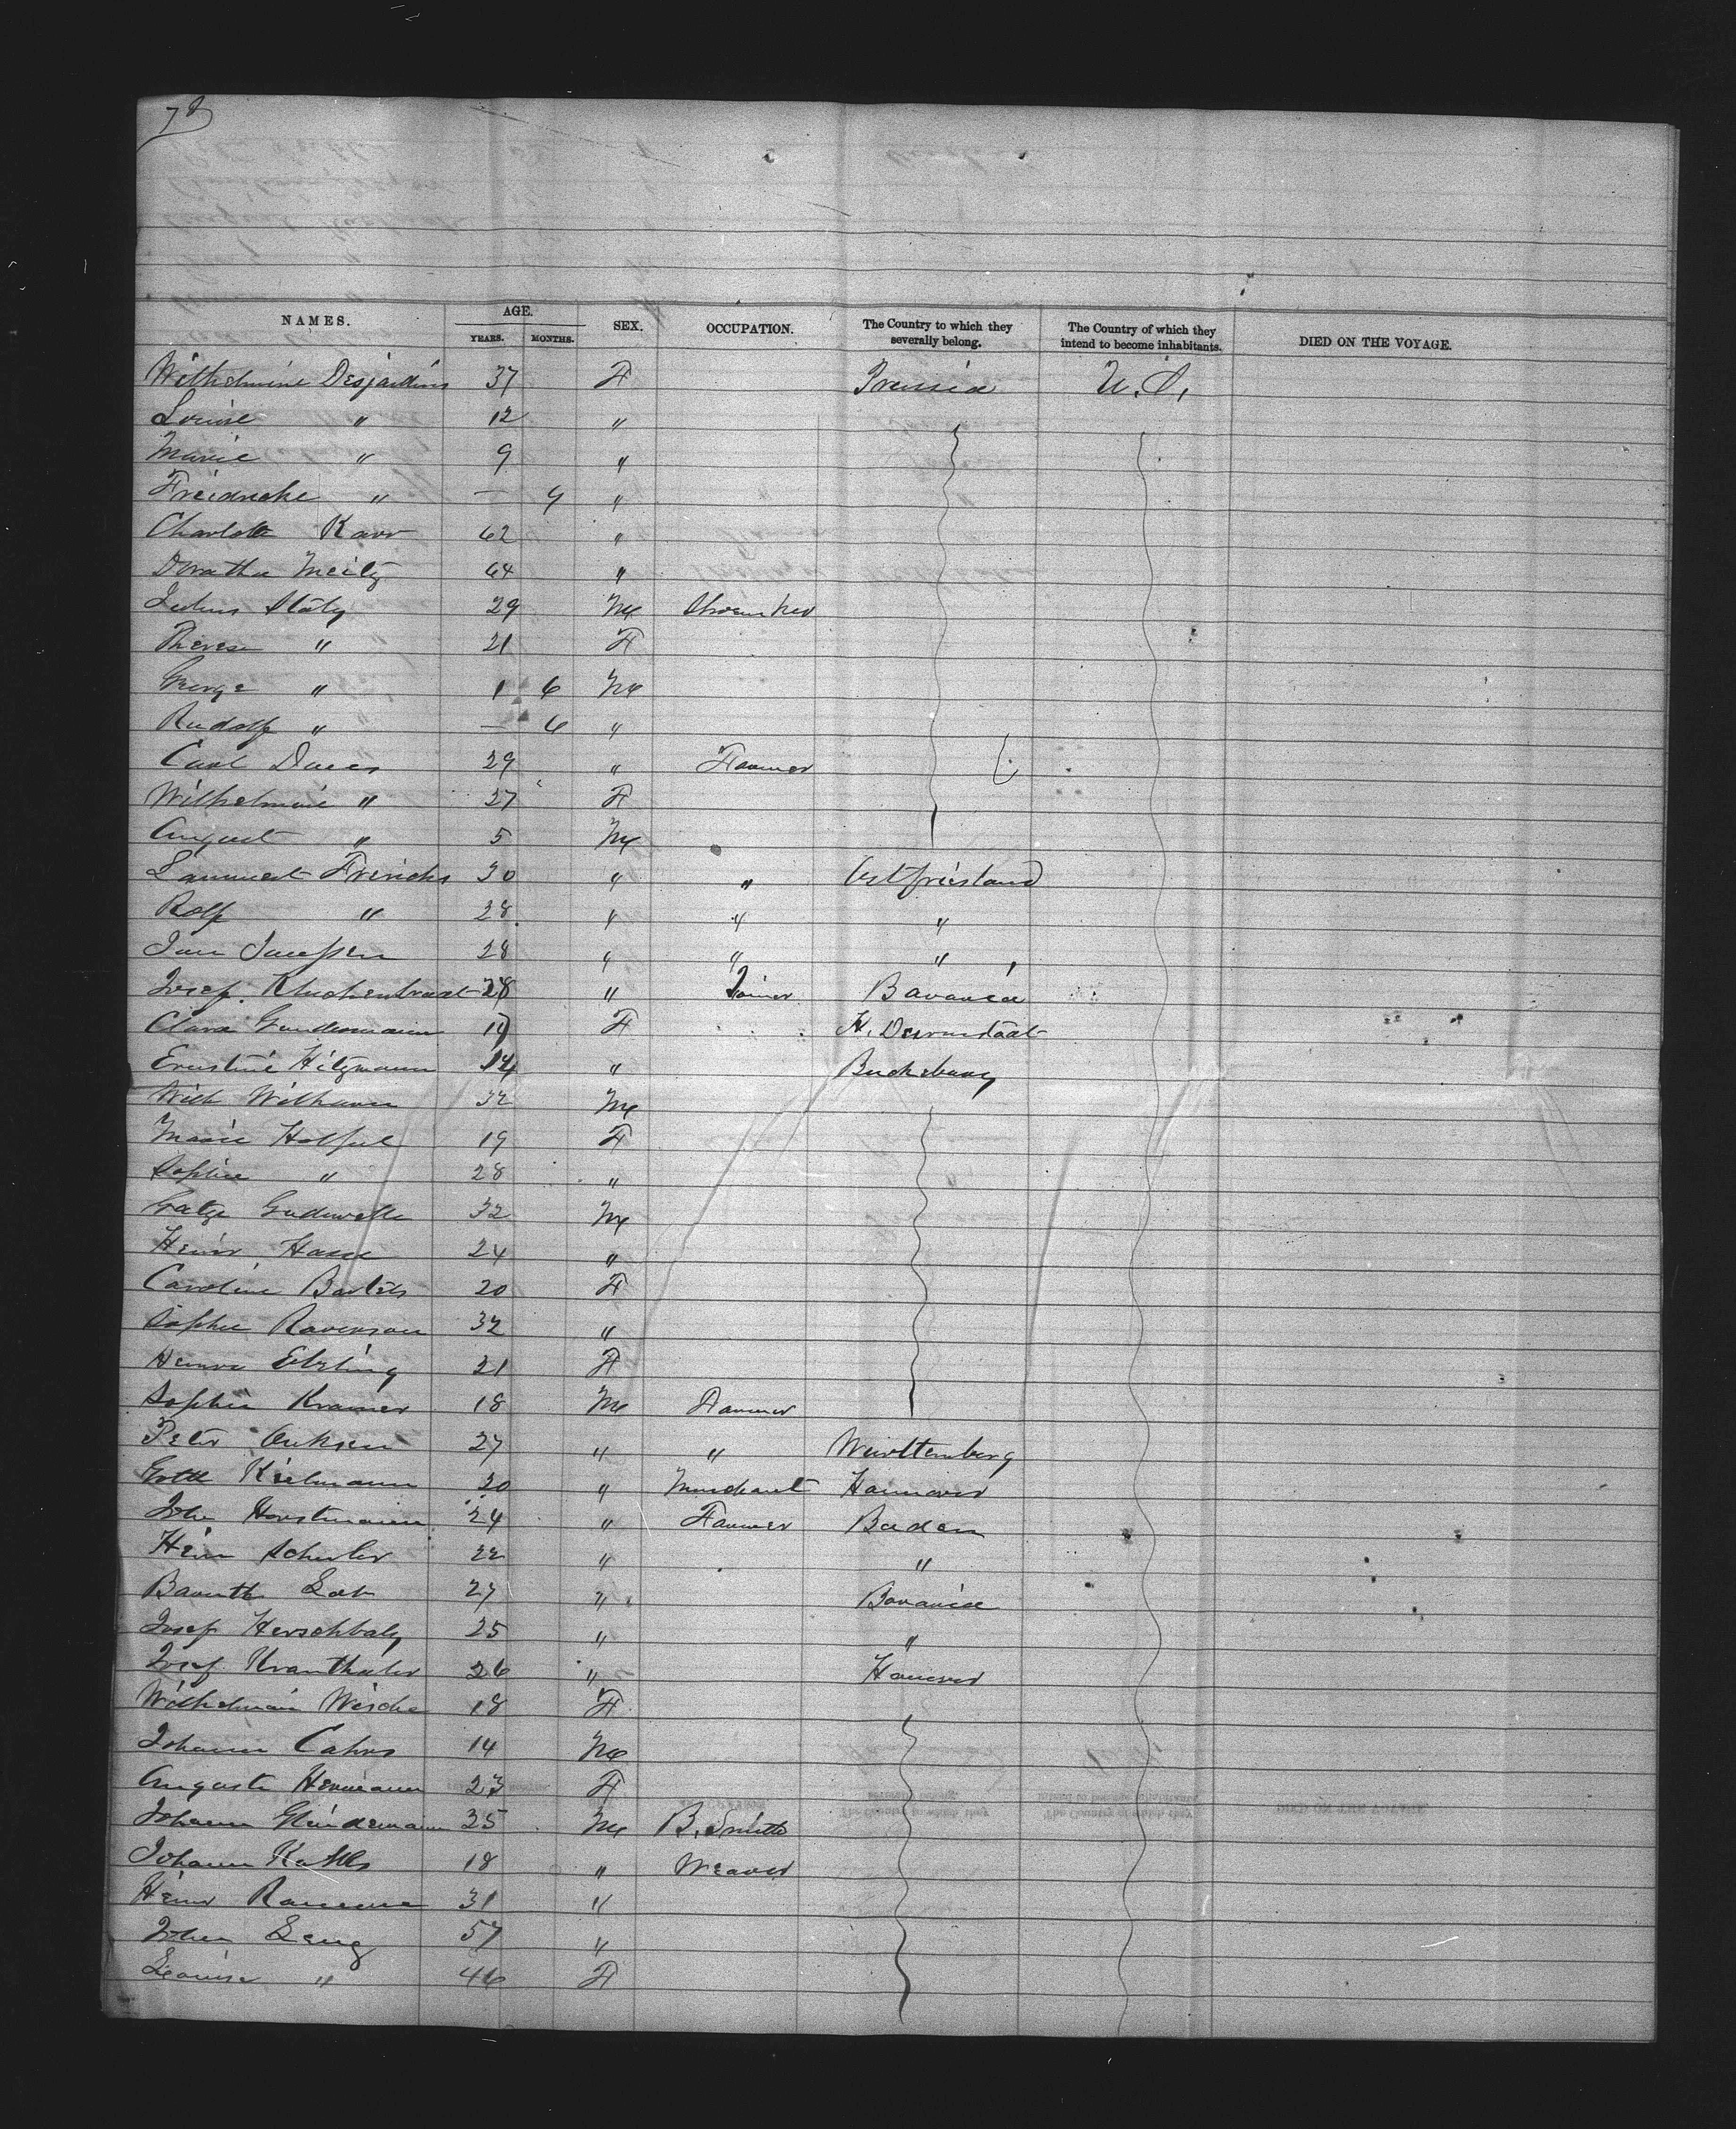 NAMES. AGE. YEARS. MONTHS. SEX. OCCUPATION. The Country to which they severally belong. The Country of which they intend to become inhabitants. DIED ON THE VOYAGE.
Wilhelmine Desjardins 37 F Prussia U.S.
Louise " 12 "
Marie " 9 "
Freidricke " — 9 "
Charlotte Karr 62 "
Doratha 64 "
Julius Stolz 29 M Shoemker
Therese " 21 F
George " 1 6 M
Rudolf " — 6 "
Carl 29 " Farmer
Wilhelmine " 27 F
August " 5 M
Lammert Frerichs 30 " " Ostfriesland
Rolf " 28 " " "
Jan Janssen 28 " " "
Josef 28 " Joiner Bavaria
Clara Gundermann 19 F H. Darmstadt
Ernstine Hitzmann 14 " Buckeburg
Wilh 32 M
Marie 19 F
Sophie " 28 "
32 M
Heinr Hasse 24 "
Caroline Bartels 20 F
Sophie 32 "
Ebeling 21 F
Sophie Kramer 18 M Farmer
Peter 27 " " Wurttemberg
Kielmann 20 " Merchant Hannover
John Horstmann 24 " Farmer Baden
Heinr Schuler 22 " "
27 " Bavaria
Josef 25 " "
Josef 26 " Hanover
Wilhelmine 18 F
Johann Cahrs 14 M
Auguste Hermann 23 F
Johann 35 M B. Smith
Johann 18 " Weaver
Heinr 31 "
John Lang 57 "
Louise " 46 F